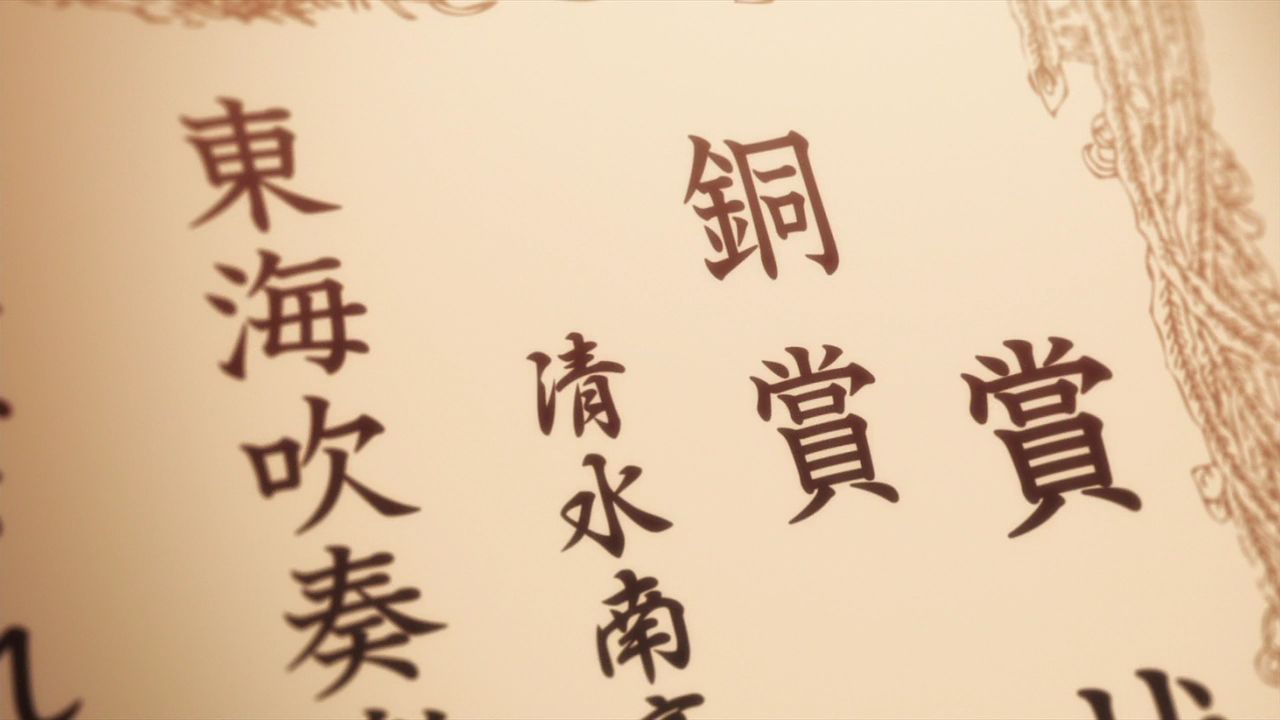 賞
銅賞
清水南
東海吹奏